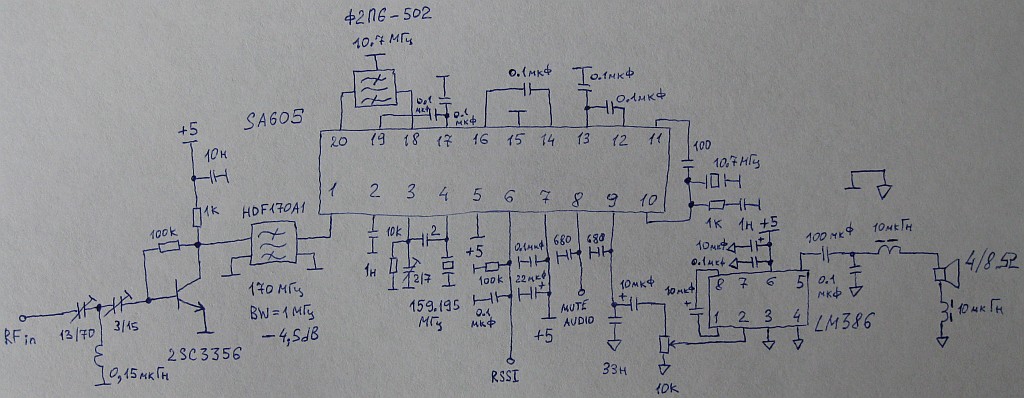 Ф2П6-502
10.7 МГц
SA605
0.1 мкф
0.1 мкф
0.1мкф
0.1мкф
0.1мкф
20 19 18 17 16 15 14 13 12 11
1 2 3 4 5 6 7 8 9 10
+5
10н
1к
100к
HDF170A1
170 МГц
BW=1МГц
-4,5dB
RFin
13/70
3/15
0,15мкГн
2SC3356
1н
10к
2/7
2
159.195
МГц
+5
100к
0.1
мкф
0.1мкф
22мкф
+5
RSSI
680
680
MUTE
AUDIO
10мкф
33н
10к
100
10.7МГц
1к
1н
+5
10мкф
0.1мкф
10мкф
8 7 6 5
1 2 3 4
LM386
100мкф
0.1
мкф
10мкГн
4/8Ω
10мкГн